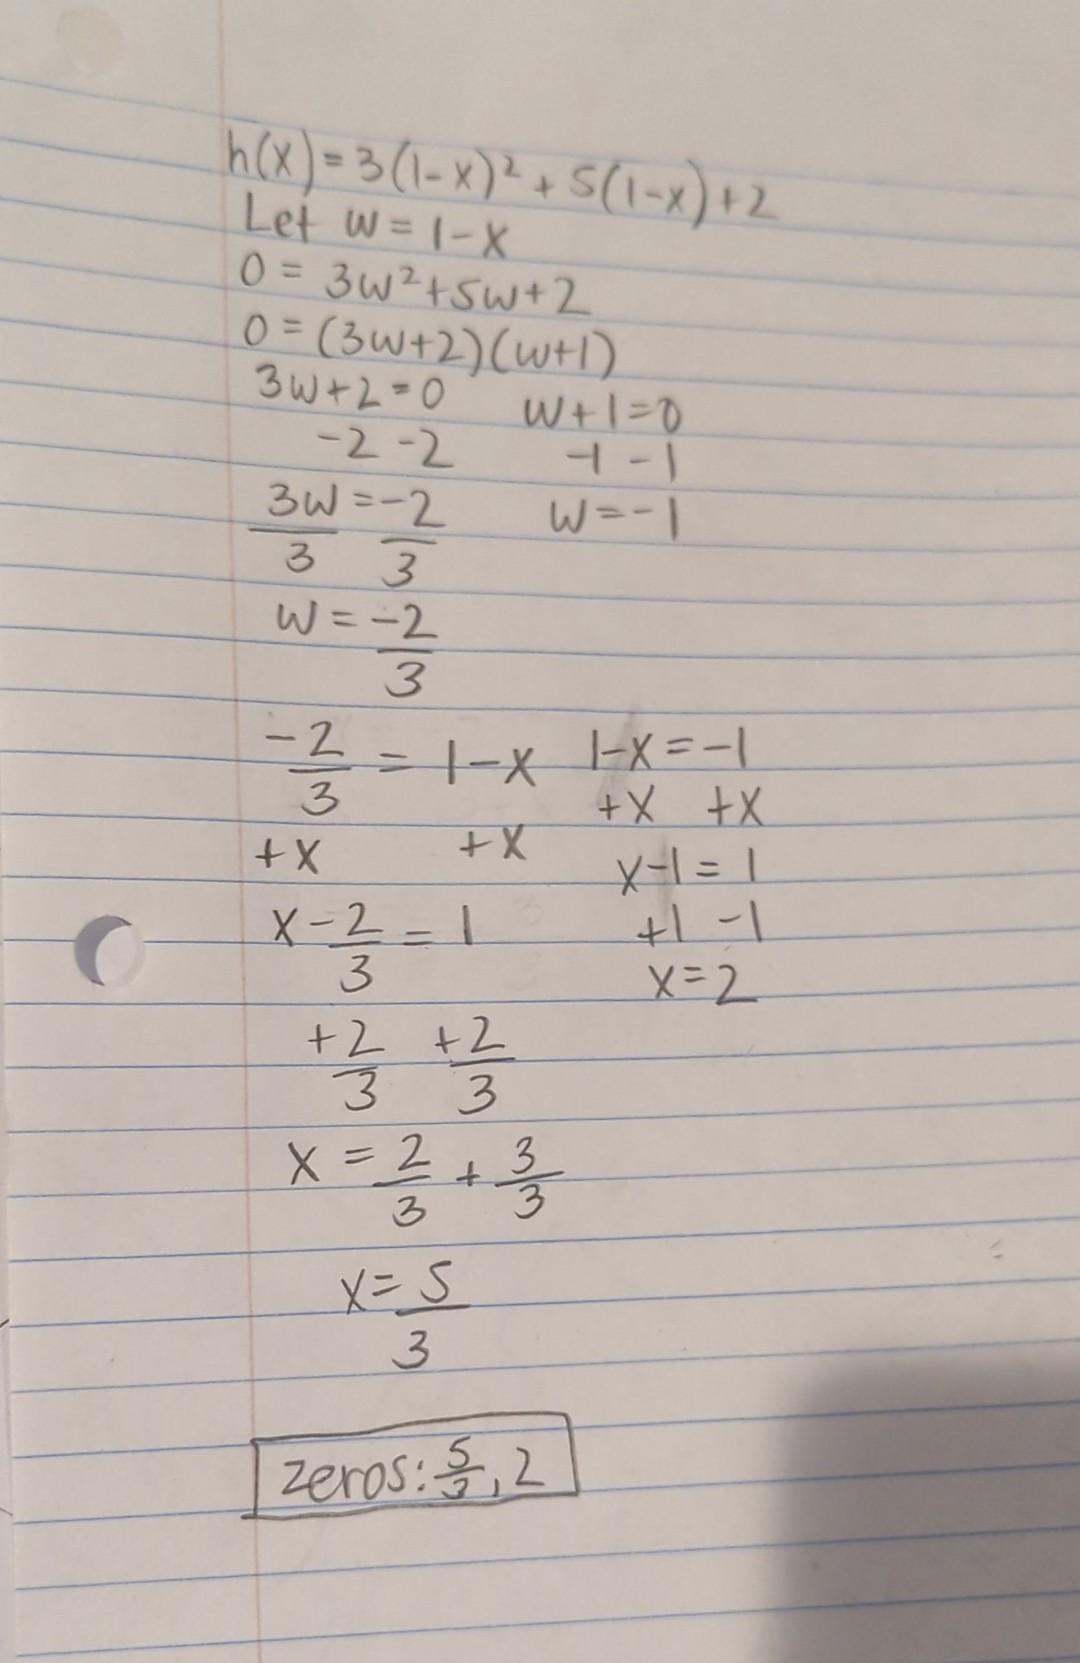 h(x) = 3(1-x)² + 5(1-x) + 2
Let w = 1-x
0 = 3w² + 5w + 2
0 = (3w+2)(w+1)
3w+2=0 w+1=0
-2 -2 -1 -1
3w = -2 w = -1
3 3
w = -2
3
-2 = 1-x 1-x = -1
3 +x +x
+x +x x-1 = 1
x - 2 = 1 +1 -1
3 x = 2
+2 +2
3 3
x = 2 + 3
3 3
x = 5
3
zeros: 5/3, 2